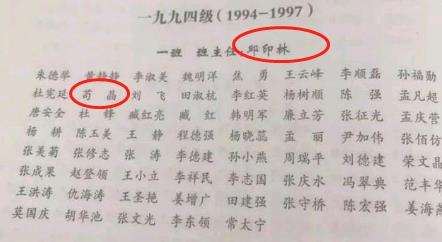 一九九四级(1994-1997)
一班 班主任:邱印林
朱德举 黄静静 李淑美 魏明洋 焦勇 王云峰 李顺磊 孙福勋
杜宪廷 苟晶 刘飞 田淑杭 李红英 杨树顺 陈强 孟凡超
唐安全 杜锋 臧红亮 臧红 韩明军 廉立芳 张征光 孟庆营
杨耕 陈玉美 王静 程德强 杨晓蕊 孟丽 尹加伟 张佰仿
张美菊 张修志 张涛 李德建 孙小燕 周瑞平 刘德建 荣文昌
张成果 赵登领 王小立 李祥民 李志国 张庆水 冯翠典 范丰华
王洪涛 仇海涛 王圣艳 姜增广 田建强 张守桥 陈宏强 姜海
莫国庆 胡华池 张文光 李东领 常太宁